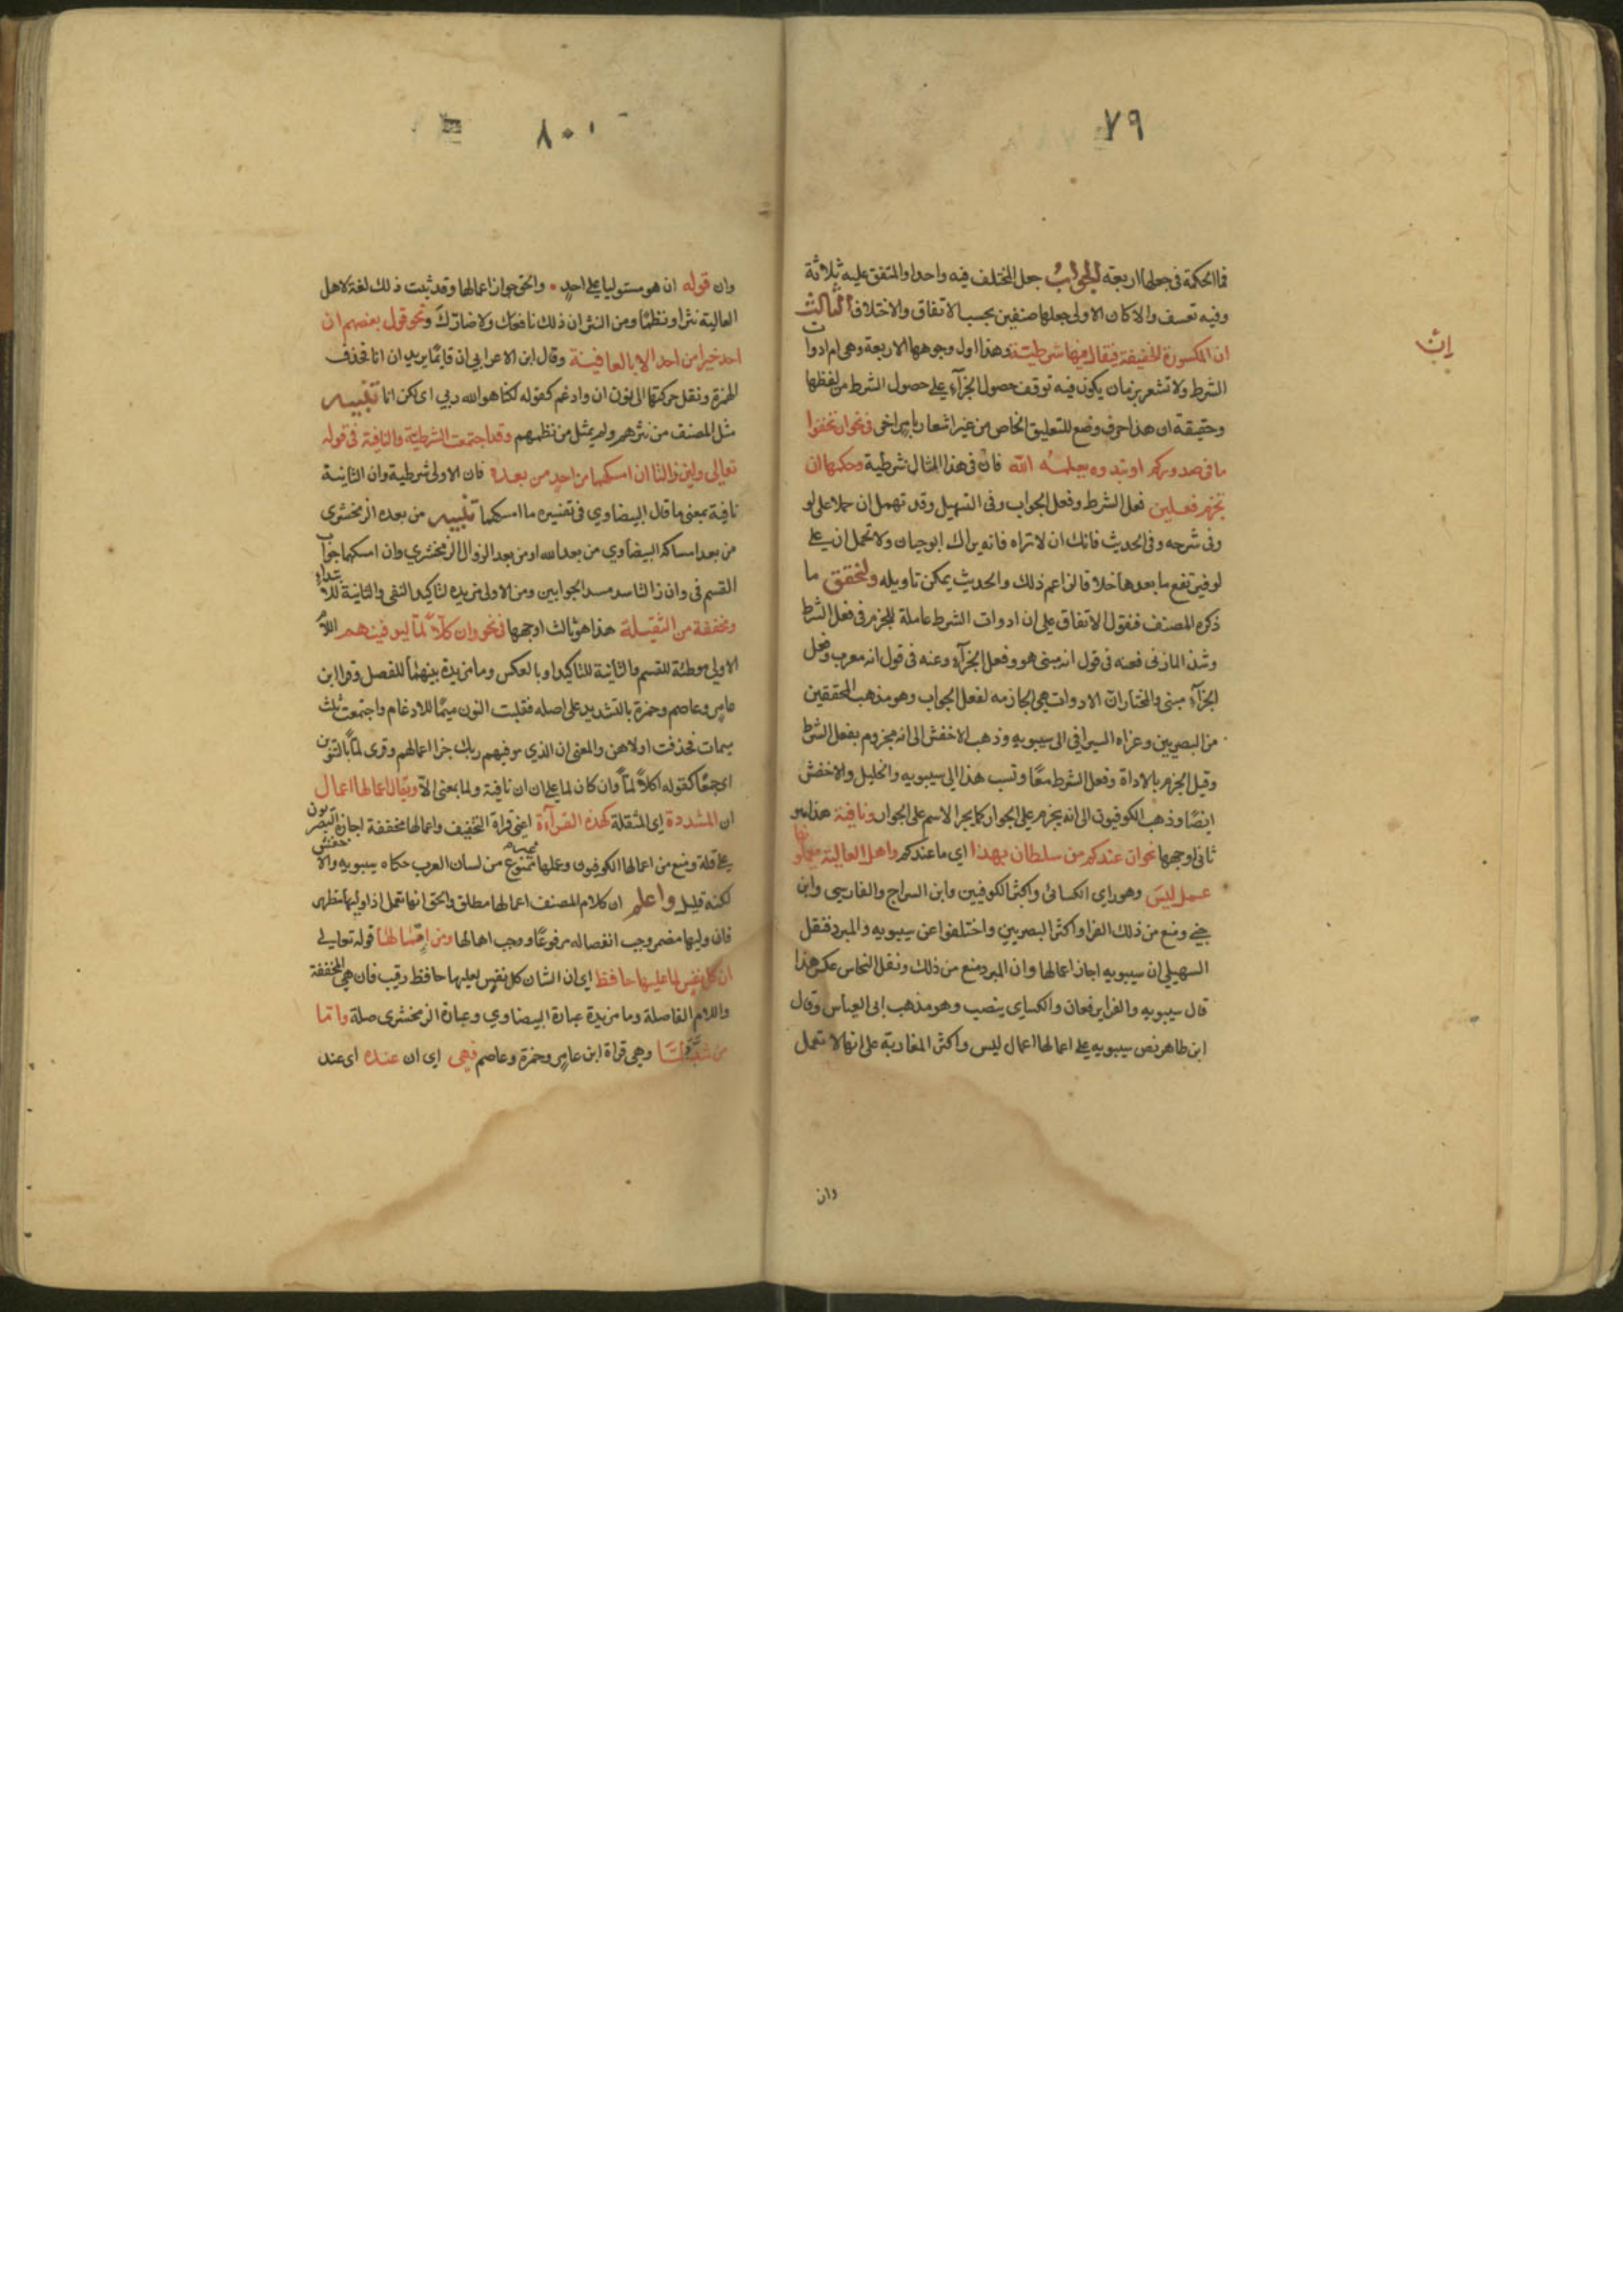 ٧٩
فما الحكمة في جعلها اربعة الجواب جعل المختلف فيه واحدا والمتفق عليه ثلاثة
وفيه تعسف والا كان الاولى جعلها صنفين بحسب الاتفاق والاختلاف الثالث
إن
ان المكسورة الخفيفة فيقال فيها شرطية وهذا اول وجوهها الاربعة وهي ام ادوات
الشرط ولا تشعر بزمان يكون فيه توقف حصول الجزآء على حصول الشرط من لفظها
وحقيقة ان هذا حرف وضع للتعليق الخاص من غير اشعار بامر اخر في نحو ان تخفوا
ما في صدوركم او تبدوه يعلمه الله فان في هذا المثال شرطية وحكمها ان
تجزم فعلين فعل الشرط وفعل الجواب وفي التسهيل وقد تهمل ان حملا على لو
وفي شرحه وفي الحديث فانك ان لا تراه فانه يراك ابو حيان ولا تحمل ان على
لو فيرتفع ما بعدها خلافا لزاعم ذلك والحديث يمكن تاويله ولنحقق ما
ذكره المصنف فنقول الاتفاق على ان ادوات الشرط عاملة للجزم في فعل الشرط
وشذ المازني فعنه في قول انه مبني هو وفعل الجزآء وعنه في قول انه معرب وفعل
الجزآء مبني والمختار ان الادوات هي الجازمه لفعل الجواب وهو مذهب المحققين
من البصريين وعزاه السيرافي الى سيبويه وذهب الاخفش الى انه مجزوم بفعل الشرط
وقيل الجزم بالاداة وفعل الشرط معًا ونسب هذا الى سيبويه والخليل والاخفش
ايضًا وذهب الكوفيون الى انه يجزم على الجوار كما يجر الاسم على الجوار ونافية هذا هو
ثاني اوجهها نحو ان عندكم من سلطان بهذا اي ما عندكم واهل العالية
عمل ليس وهو راي الكسائي واكثر الكوفيين وابن السراج والفارسي وابن
جني ومنع من ذلك الفرا واكثر البصريين واختلفوا عن سيبويه والمبرد فنقل
السهيلي ان سيبويه اجاز اعمالها وان المبرد منع من ذلك ونقل النحاس عكس هذا
قال سيبويه والفرا يرفعان والكساي ينصب وهو مذهب ابي العباس وقال
ابن طاهر نص سيبويه على اعمالها اعمال ليس واكثر المغاربة على انها لا تعمل
وان
٨٠
وان قوله ان هو مستوليا على احدٍ • والحق جواز اعمالها وقد ثبت ذلك لغة لاهل
العالية نثرا ونظمًا ومن النثر ان ذلك نافعك ولا ضارك ونحو قول بعضهم ان
احد خيرا من احد الا بالعافية وقال ابن الاعرابي ان قايمًا يريد ان انا فحذف
الهمزة ونقل حركتها الى نون ان وادغم كقوله لكنا هو الله ربي اي لكن انا تنبيه
مثل المصنف من نثرهم ولم يمثل من نظمهم وقد اجتمعت الشرطية والنافية في قوله
تعالى ولئن زالتا ان امسكهما من احدٍ من بعده فان الاولى شرطية وان الثانية
نافية بمعنى ما قال البيضاوي في تفسيره ما امسكهما تنبيه من بعده الزمخشري
من بعد امساكه البيضاوي من بعد الله او من بعد الزوال الزمخشري وان امسكهما جواب
القسم في وان زالتا سد مسد الجوابين ومن الاولى مزيده لتاكيد النفي والثانية للابتداء
ومخففة من الثقيلة هذا هو ثالث اوجهها في نحو وان كلاًّ لمّا ليوفينهم اللام
الاولى موطئة للقسم والثانية للتاكيد او بالعكس وما مزيدة بينهما للفصل وقرا ابن
عامر وعاصم وحمزة بالتشديد على اصله فقلبت النون ميمًا للادغام واجتمعت ثلث
ميمات فحذفت اولاهن والمعنى ان الذي موفيهم ربك جزا اعمالهم وقرى لمّاً بالتنوين
اي جمعًا كقوله اكلاً لمّاً وان كان لما على ان ان نافية ولما بمعنى الا ويقال اعمالها اعمال
ان المشددة اي المثقلة كهذه القرآءة اعني قراة التخفيف واعمالها مخففة اجازه البصريون
على قلة ومنع من اعمالها الكوفيون وعملها ممنوع من لسان العرب حكاه سيبويه والاخفش
لكنه قليل واعلم ان كلام المصنف اعمالها مطلق والحق انها تعمل اذا وليها مظهر
فان وليها مضمر وجب انفصاله مرفوعًا ووجب اهمالها ومن اهمالها قوله تعالى
ان كل نفس لما عليها حافظ اي ان الشان كل نفس لعليها حافظ رقيب فان هي المخففة
واللام الفاصلة وما مزيدة عبارة البيضاوي وعبارة الزمخشري صلة واما
من شدد لمّا وهي قراة ابن عامرٍ وحمزة وعاصم فهي اي ان عنده اي عند